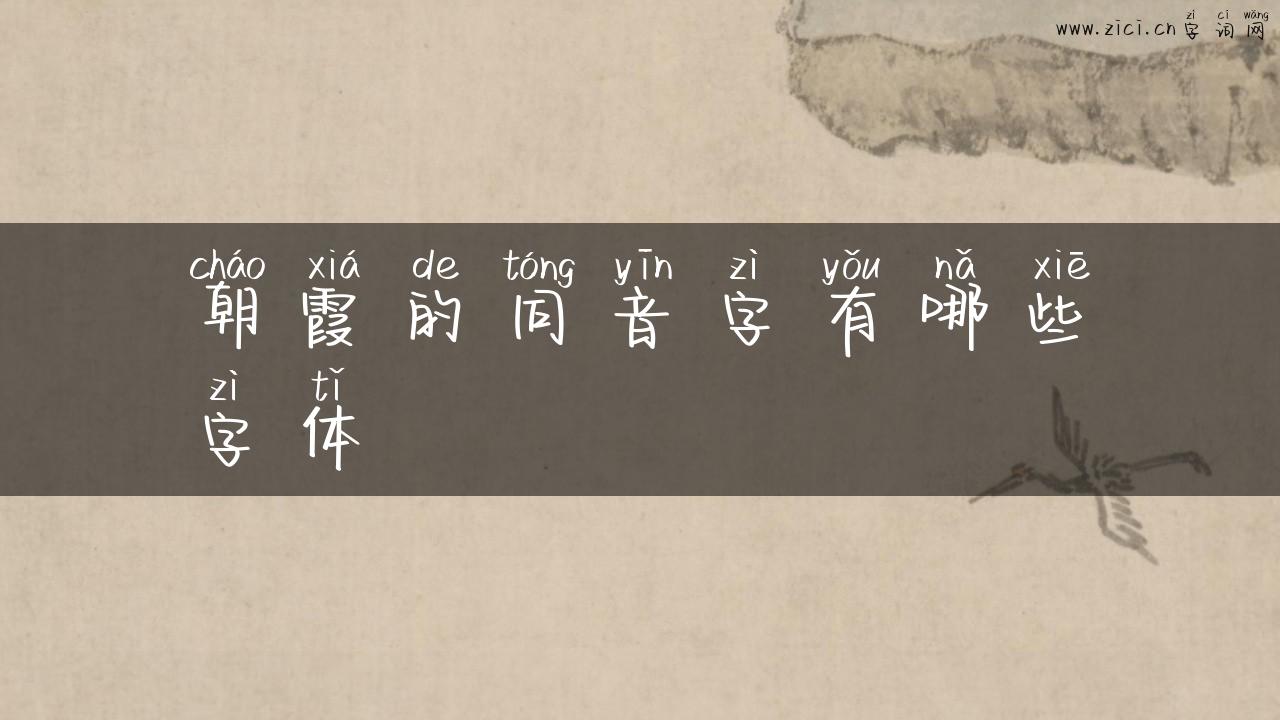 zì cí wǎng
www.zici.cn 字 词 网
cháo xiá de tóng yīn zì yǒu nǎ xiē
朝 霞 的 同 音 字 有 哪 些
zì tǐ
字 体